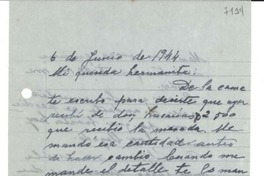 7134
6 de Junio de 1944
Mi querida hermanita:
De la cama
te escribo para decirte que ayer
recibí de don Lucarino $2000
que recibió la mesada. Me
mandó esa cantidad antes
de hacer cambio. Cuando me
mande el detalle te lo man